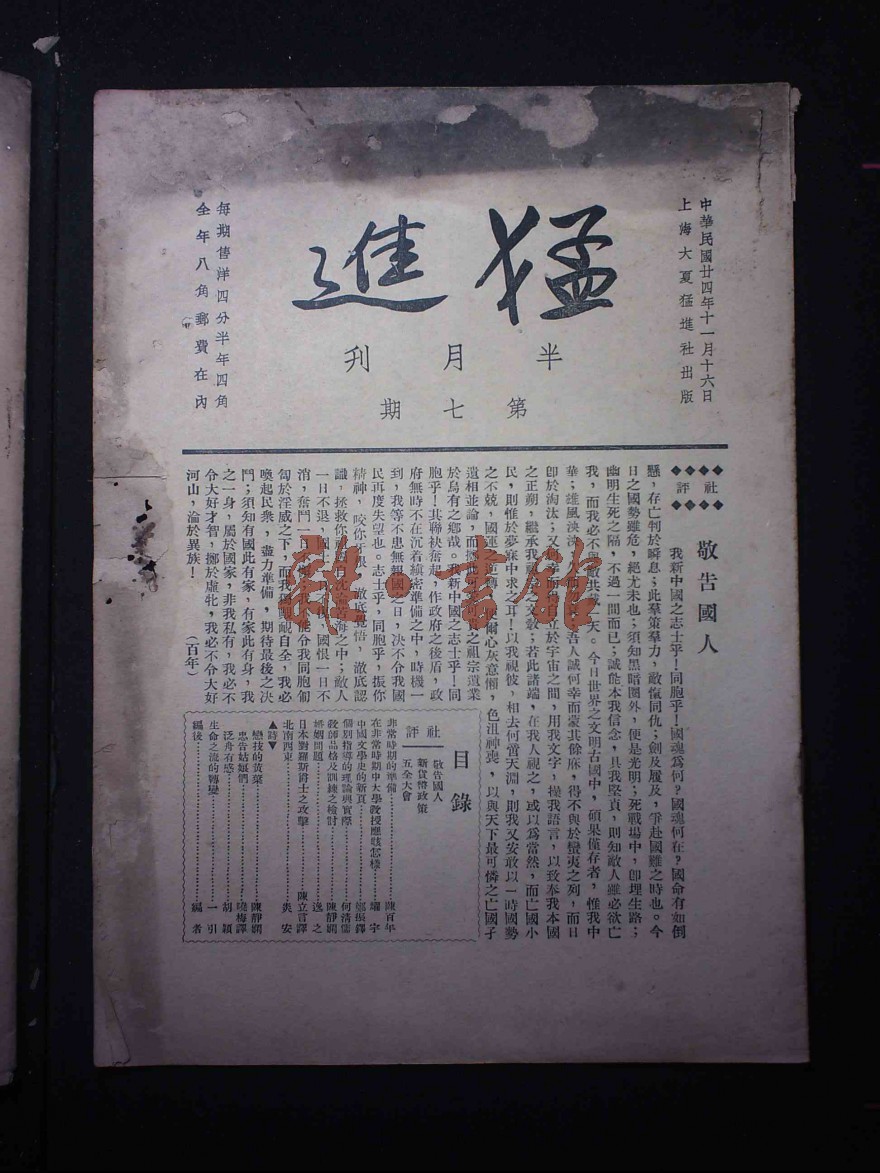 中華民國廿四年十一月十六日
上海大夏猛進社出版
猛進
半月刊
第七期
每期售洋四分半年四角
全年八角郵費在內
社評
敬告國人
我新中國之志士乎!同胞乎!國魂爲何?國魂何在?國命有如倒
懸,存亡判於瞬息;此羣策羣力,敵愾同仇;劍及履及,爭赴國難之時也。今
日之國勢雖危,絕尤未也;須知黑暗圈外,便是光明;死戰場中,卽埋生路;
幽明生死之隔,不過一間而已;誠能本我信念,具我堅貞,則知敵人雖必欲亡
我,而我必不與敵共戴一天。今日世界之文明古國中,碩果僅存者,惟我中
華;雄風泱泱,吾人誠何幸而蒙其餘庥,得不與於蠻夷之列,而日
卽於淘汰;又何幸而得自立於宇宙之間,用我文字,操我語言,以致奉我本國
之正朔,繼承我文敎;若此諸端,在我人視之,或以爲當然,而亡國小
民,則惟於夢寐中求之耳!以我視彼,相去何啻天淵,則我又安敢以一時國勢
之不兢,國運爾心灰意懶,色沮神喪,以與天下最可憐之亡國孑
遺相並論,而之祖宗遺業
於烏有之鄉哉。我新中國之志士乎!同
胞乎!其聯袂奮起,作政府之後盾,政
府無時不在沉着縝密準備之中,時機一
到,我等不患無報國之日,决不令我國
民再度失望也。志士乎,同胞乎,振你
精神,咬你牙根,澈底覺悟,澈底認
識,拯救你祖國沉淪苦海之中;敵人
一日不退,國國恨一日不
消,奮鬥一日能令我同胞匍
匐於淫威之下,而我獨靦覥自全,我必
喚起民衆,盡力準備,期待最後之决
鬥;須知有國此有家,有家此有身,我
之一身,屬於國家,非我私有,我必不
令大好才智,擲於虛牝,我必不令大好
河山,淪於異族!
(百年)
目錄
社評
敬告國人
新貨幣政策
五全大會
非常時期的準備 陳百年
在非常時期中大學敎授應該怎樣 宇
中國文學史的新頁 鄭振鐸
個別指導的理論與實際 何清儒
敎師品格及訓練之檢討 陳靜嫻
婚姻問題 逸之
日本對羅斯爵士之攻擊 陳立言譯
北南西東 炎安
▲詩▼
戀枝的黃葉 陳靜嫻
忠告姑娘們 曉梅譯
泛舟有感 胡穎
生命之流的轉變 一引
編後 編者
雜·書館